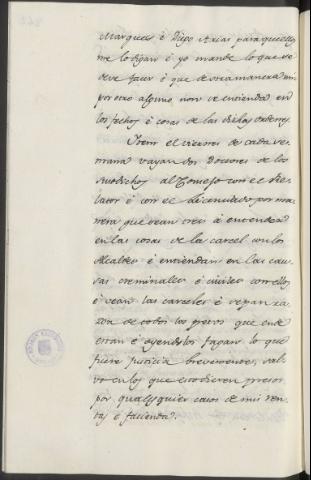 Marques é Diego Arias para que ellos
me lo digan é yo mande lo que se
deve facer é que de otra manera nin
por otro alguno non se entienda en
los fechos é cosas de las dichas ordenes.
Item el viernes de cada se-
mana vayan dos Doctores de los
susodichos al Consejo con el Re-
lator é con el Licenciado por ma-
nera que sean tres á entender
en las cosas de la carcel con los
Alcaldes é entiendan en las cau-
sas creminales é civiles con ellos
é vean las carceles é sepan ra-
zon de todos los presos que ende
estan é oyendolos fagan lo que
fuere justicia brevemente, sal-
vo en los que estodieren presos
por qualesquier casos de mis ren-
tas é facienda.